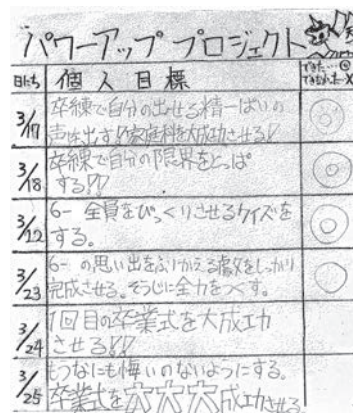 パワーアッププロジェクト
できた…◎
できなかった…X
日にち 個人目標
3/17 卒練で自分の出せる精一ぱいの
声を出す!!家庭科を大成功させる!!
3/18 卒練で自分の限界をとっぱ
する!!
3/22 6-一全員をびっくりさせるクイズを
する。
3/23 6-一の思い出をふりかえる
をしっかり
完成させる。そうじに全力をつくす。
3/24 1回目の卒業式を大成功
させる!!
3/25 もうなにも悔いのないようにする。
卒業式を大大大成功させる